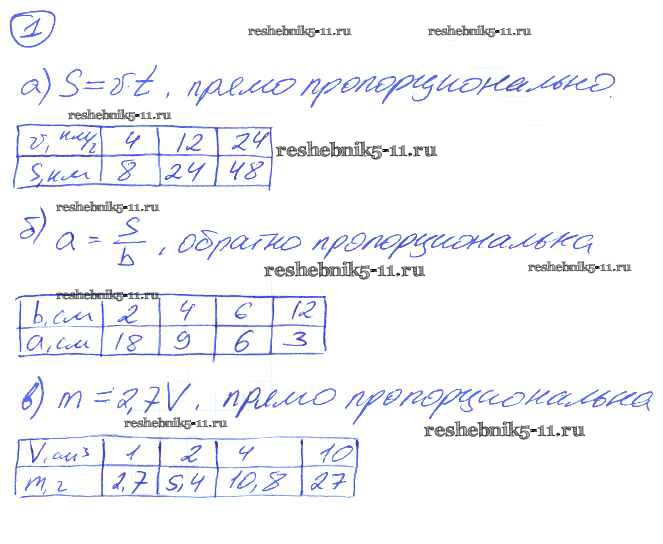 1
reshebnik5-11.ru reshebnik5-11.ru
а) S = v·t, прямо пропорционально.
reshebnik5-11.ru
v, км/ч 4 12 24
reshebnik5-11.ru
S, км 8 24 48
reshebnik5-11.ru
б) a = S/b, обратно пропорциональна
reshebnik5-11.ru reshebnik5-11.ru
reshebnik5-11.ru
b, см 2 4 6 12
a, см 18 9 6 3
в) m = 2,7V, прямо пропорциональна
reshebnik5-11.ru reshebnik5-11.ru
V, см3 1 2 4 10
m, г 2,7 5,4 10,8 27